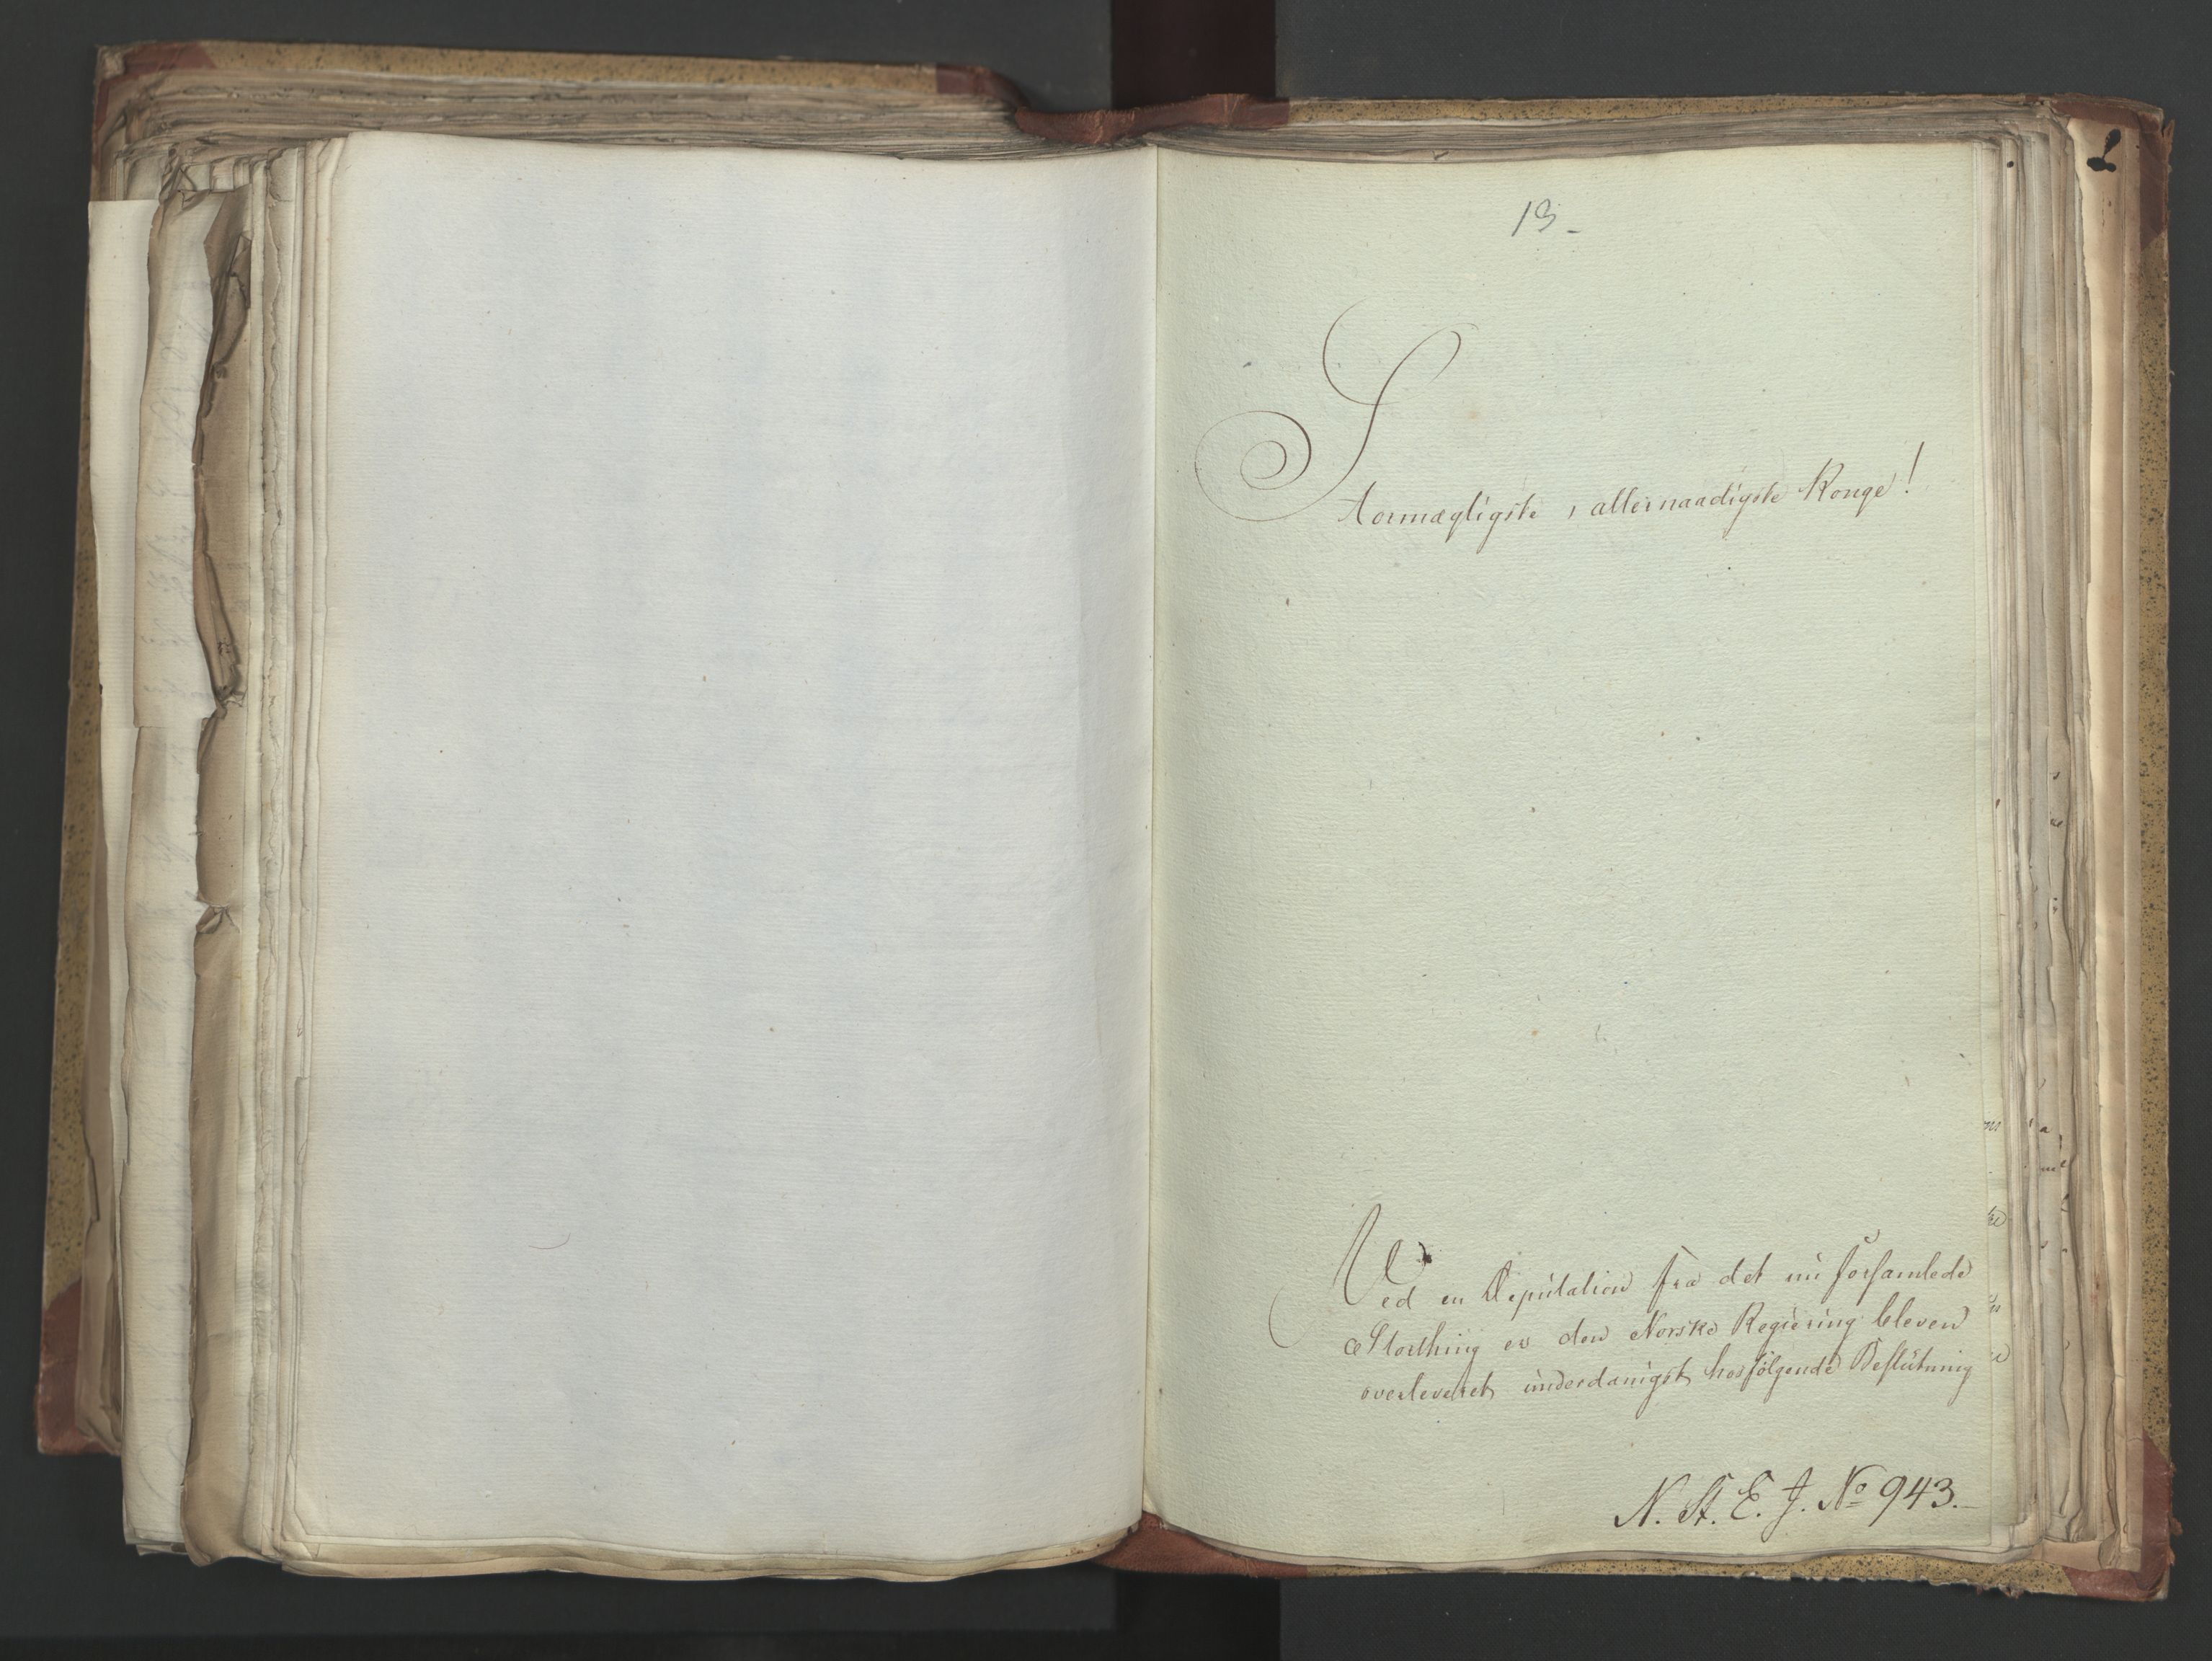 13.
Stormægtigste, allernaadigste Konge!
Ved en Deputation fra det nu forsamlede
Storthing er den Norske Regiering bleven
overleveret underdanigst hosfølgende Beslutning
N. St. E. J. No 943.